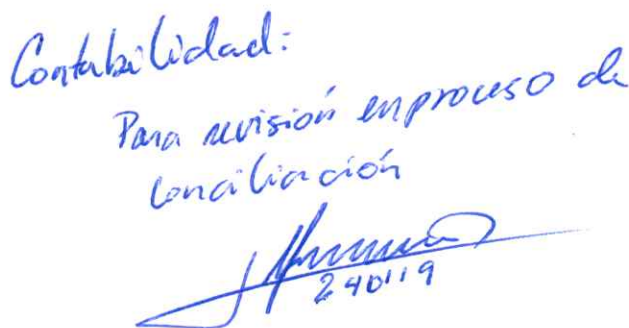 Contabilidad:
Para revisión en proceso de
conciliación
240119